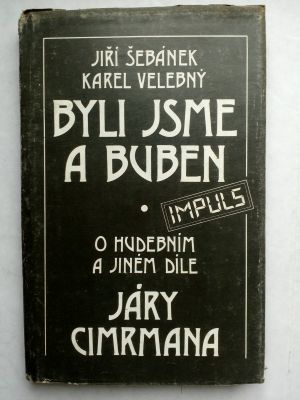 JIŘÍ ŠEBÁNEK
KAREL VELEBNÝ
BYLI JSME
A BUBEN
• IMPULS
O HUDEBNÍM
A JINÉM DÍLE
JÁRY
CIMRMANA